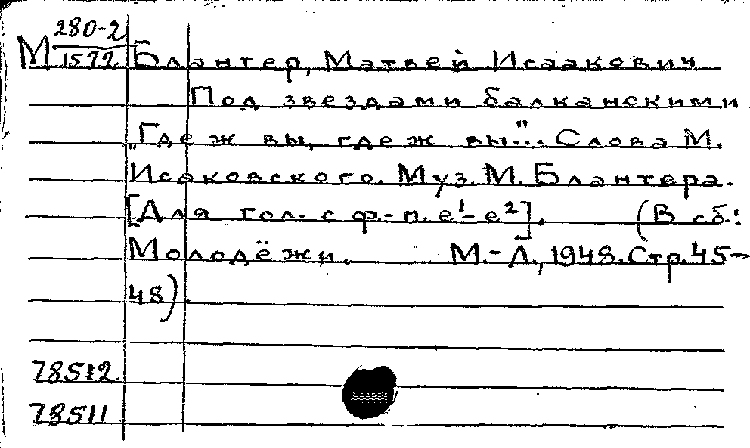 280-2
М 1572 Блантер, Матвей Исаакович
Под звездами балканскими
„Где ж вы, где ж вы"... Слова М.
Исаковского. Муз. М. Блантера.
[Для гол. с ф.-п. e¹-e²]. (В сб.:
Молодёжи. М.-Л., 1948. Стр. 45-
48).
78512
78511